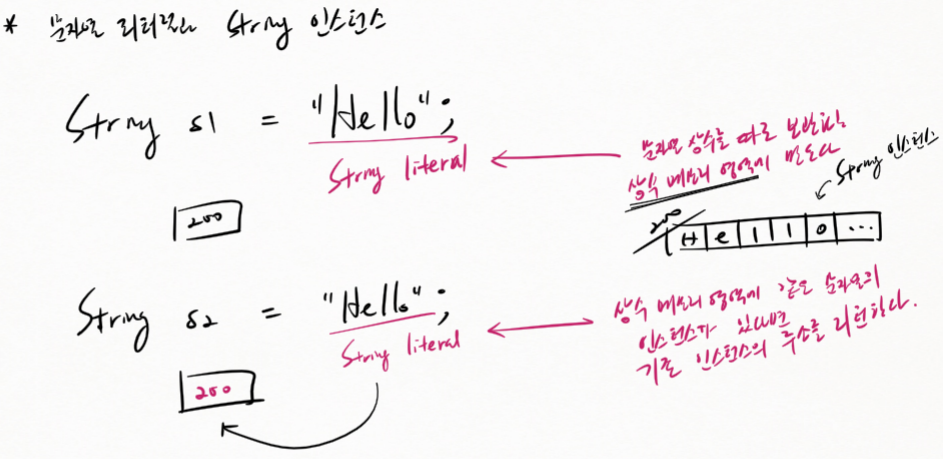 * 문자열 리터럴과 String 인스턴스
String s1 = "Hello";
String literal
문자열 상수를 따로 보관하는
상수 메모리 영역에 만든다
String 인스턴스
200
200
H e l l o ...
String s2 = "Hello";
String literal
상수 메모리 영역에 같은 문자열의
인스턴스가 있다면
기존 인스턴스의 주소를 리턴한다.
200